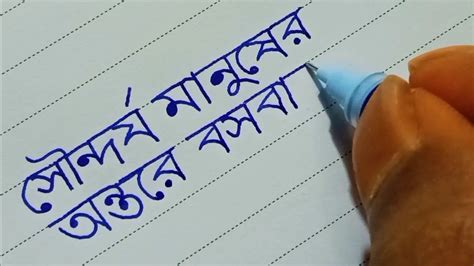 সৌন্দর্য মানুষের
অন্তরে বসবা